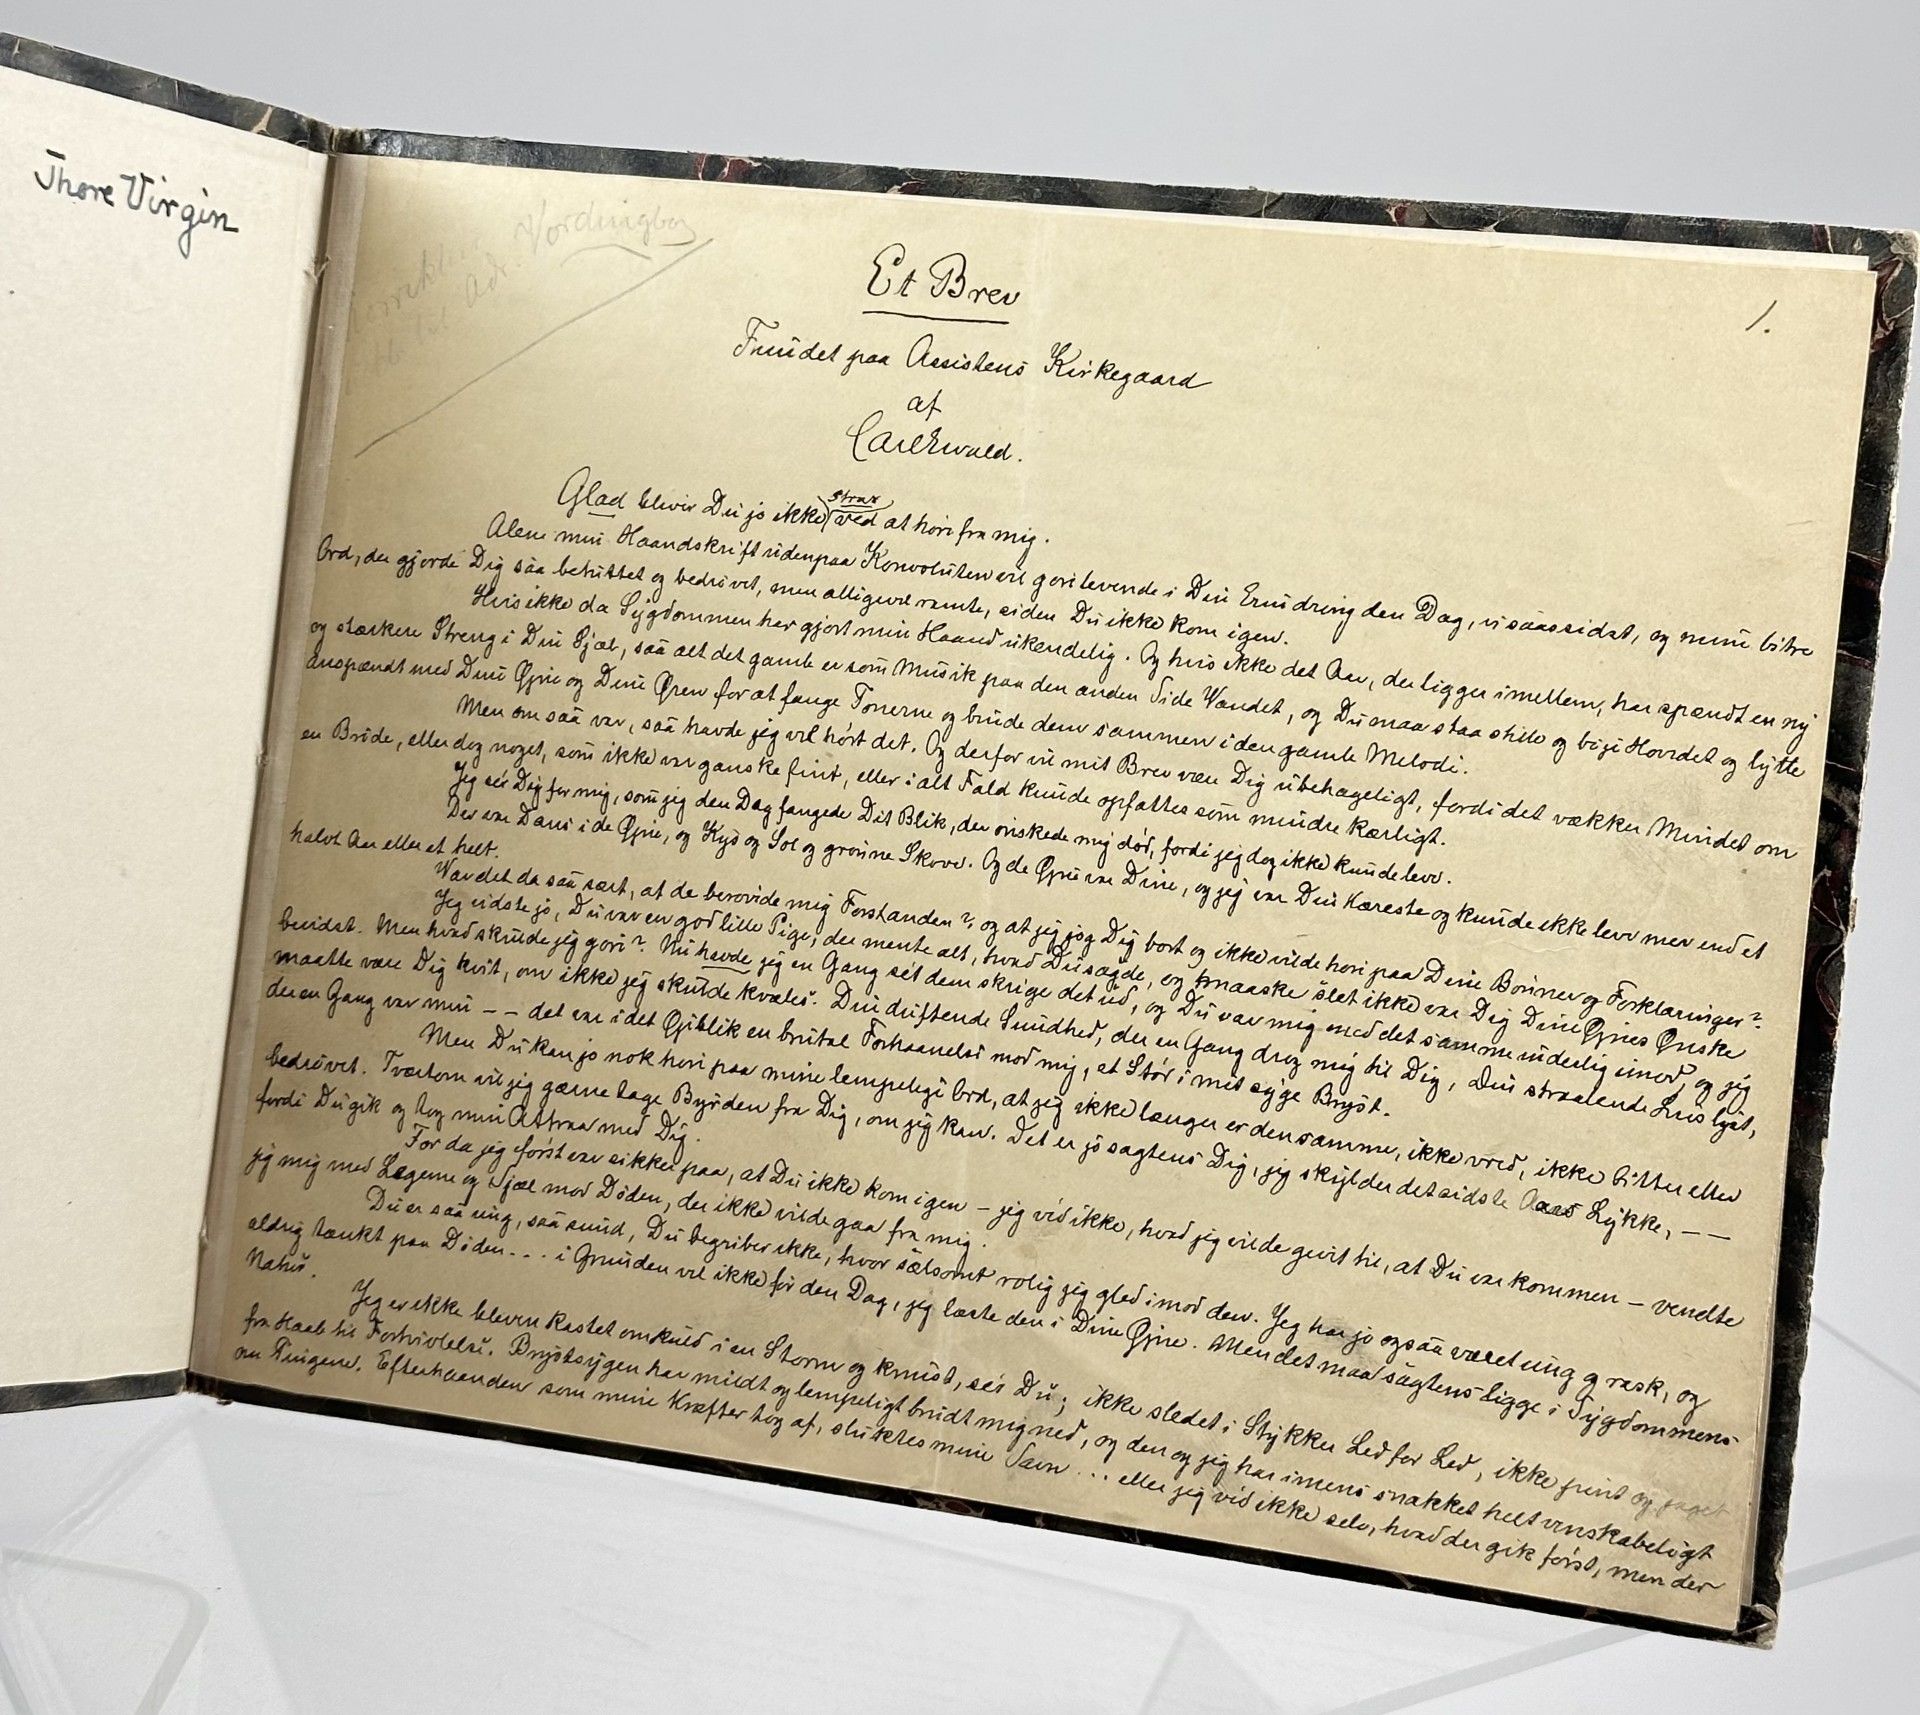 Thore Virgin
Adr. Vordingborg
1.
Et Brev
Fundet paa Assistens Kirkegaard
af
Carl Ewald.
Glad bliver Du jo ikke strax ved at høre fra mig.
Alene min Haandskrift udenpaa Konvoluten vil gøre levende i Din Erindring den Dag, vi saaes sidst, og mine bitre
Ord, der gjorde Dig saa betuttet og bedrøvet, men alligevel ramte, siden Du ikke kom igen.
Hvis ikke da Sygdommen har gjort min Haand ukendelig. Og hvis ikke det Aar, der ligger imellem, har spændt en ny
og stærkere Streng i Din Sjæl, saa alt det gamle er som Musik paa den anden Side Vandet, og Du maa staa stille og bøje Hovedet og lytte
anspændt med Dine Øjne og Dine Øren for at fange Tonerne og binde dem sammen i den gamle Melodi.
Men om saa var, saa havde jeg vel hørt det. Og derfor vil mit Brev være Dig ubehageligt, fordi det vækker Mindet om
en Brøde, eller dog noget, som ikke var ganske fint, eller i alt Fald kunde opfattes som mindre kærligt.
Jeg sér Dig for mig, som jeg den Dag fangede Dit Blik, der ønskede mig død, fordi jeg dog ikke kunde leve.
Der var Dans i de Øjne, og Kys og Sol og grønne Skove. Og de Øjne var Dine, og jeg var Din Kæreste og kunde ikke leve mer end et
halvt Aar eller et helt.
Var det da saa sært, at de berøvede mig Forstanden? og at jeg jog Dig bort og ikke vilde høre paa Dine Bønner og Forklaringer?
Jeg vidste jo, Du var en god lille Pige, der mente alt, hvad Du sagde, og maaske slet ikke var Dig Dine Øjnes Ønske
bevidst. Men hvad skulde jeg gøre? Nu havde jeg en Gang sét dem skrige det ud, og Du var mig med det samme inderlig imod, og jeg
maatte være Dig kvit, om ikke jeg skulde kvæles. Din duftende Sundhed, der en Gang drog mig til Dig, Din straalende Livslyst,
der en Gang var min -- det var i det Øjeblik en brutal Forhaanelse mod mig, et Stød i mit syge Bryst.
Men Du kan jo nok høre paa mine lempelige Ord, at jeg ikke længer er den samme, ikke vred, ikke bitter eller
bedrøvet. Tværtom vil jeg gærne tage Byrden fra Dig, om jeg kan. Det er jo sagtens Dig, jeg skylder det sidste Aars Lykke, --
fordi Du gik og tog min Attraa med Dig.
For da jeg først var sikker paa, at Du ikke kom igen – jeg véd ikke, hvad jeg vilde gevet til, at Du var kommen – vendte
jeg mig med Legeme og Sjæl mod Døden, der ikke vilde gaa fra mig.
Du er saa ung, saa sund, Du begriber ikke, hvor sælsomt rolig jeg gled imod den. Jeg har jo ogsaa været ung og rask, og
aldrig tænkt paa Døden... i Grunden vel ikke før den Dag, jeg læste den i Dine Øjne. Men det maa sagtens ligge i Sygdommens
Natur.
Jeg er ikke bleven kastet omkuld i en Storm og knust, sér Du; ikke sledet i Stykker Led for Led, ikke pint og jaget
fra Haab til Fortvivlelse. Brystsygen har mildt og lempeligt brudt mig ned, og den og jeg har imens snakket helt venskabeligt
om Tingene. Efterhaanden som mine Kræfter tog af, sluktes mine Savn... eller jeg véd ikke selv, hvad der gik først, men der